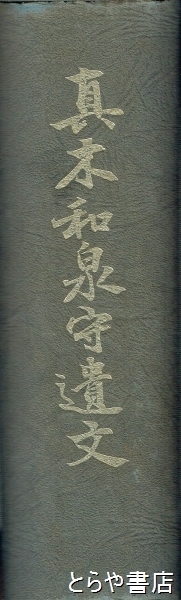 真木和泉守遺文
とらや書店